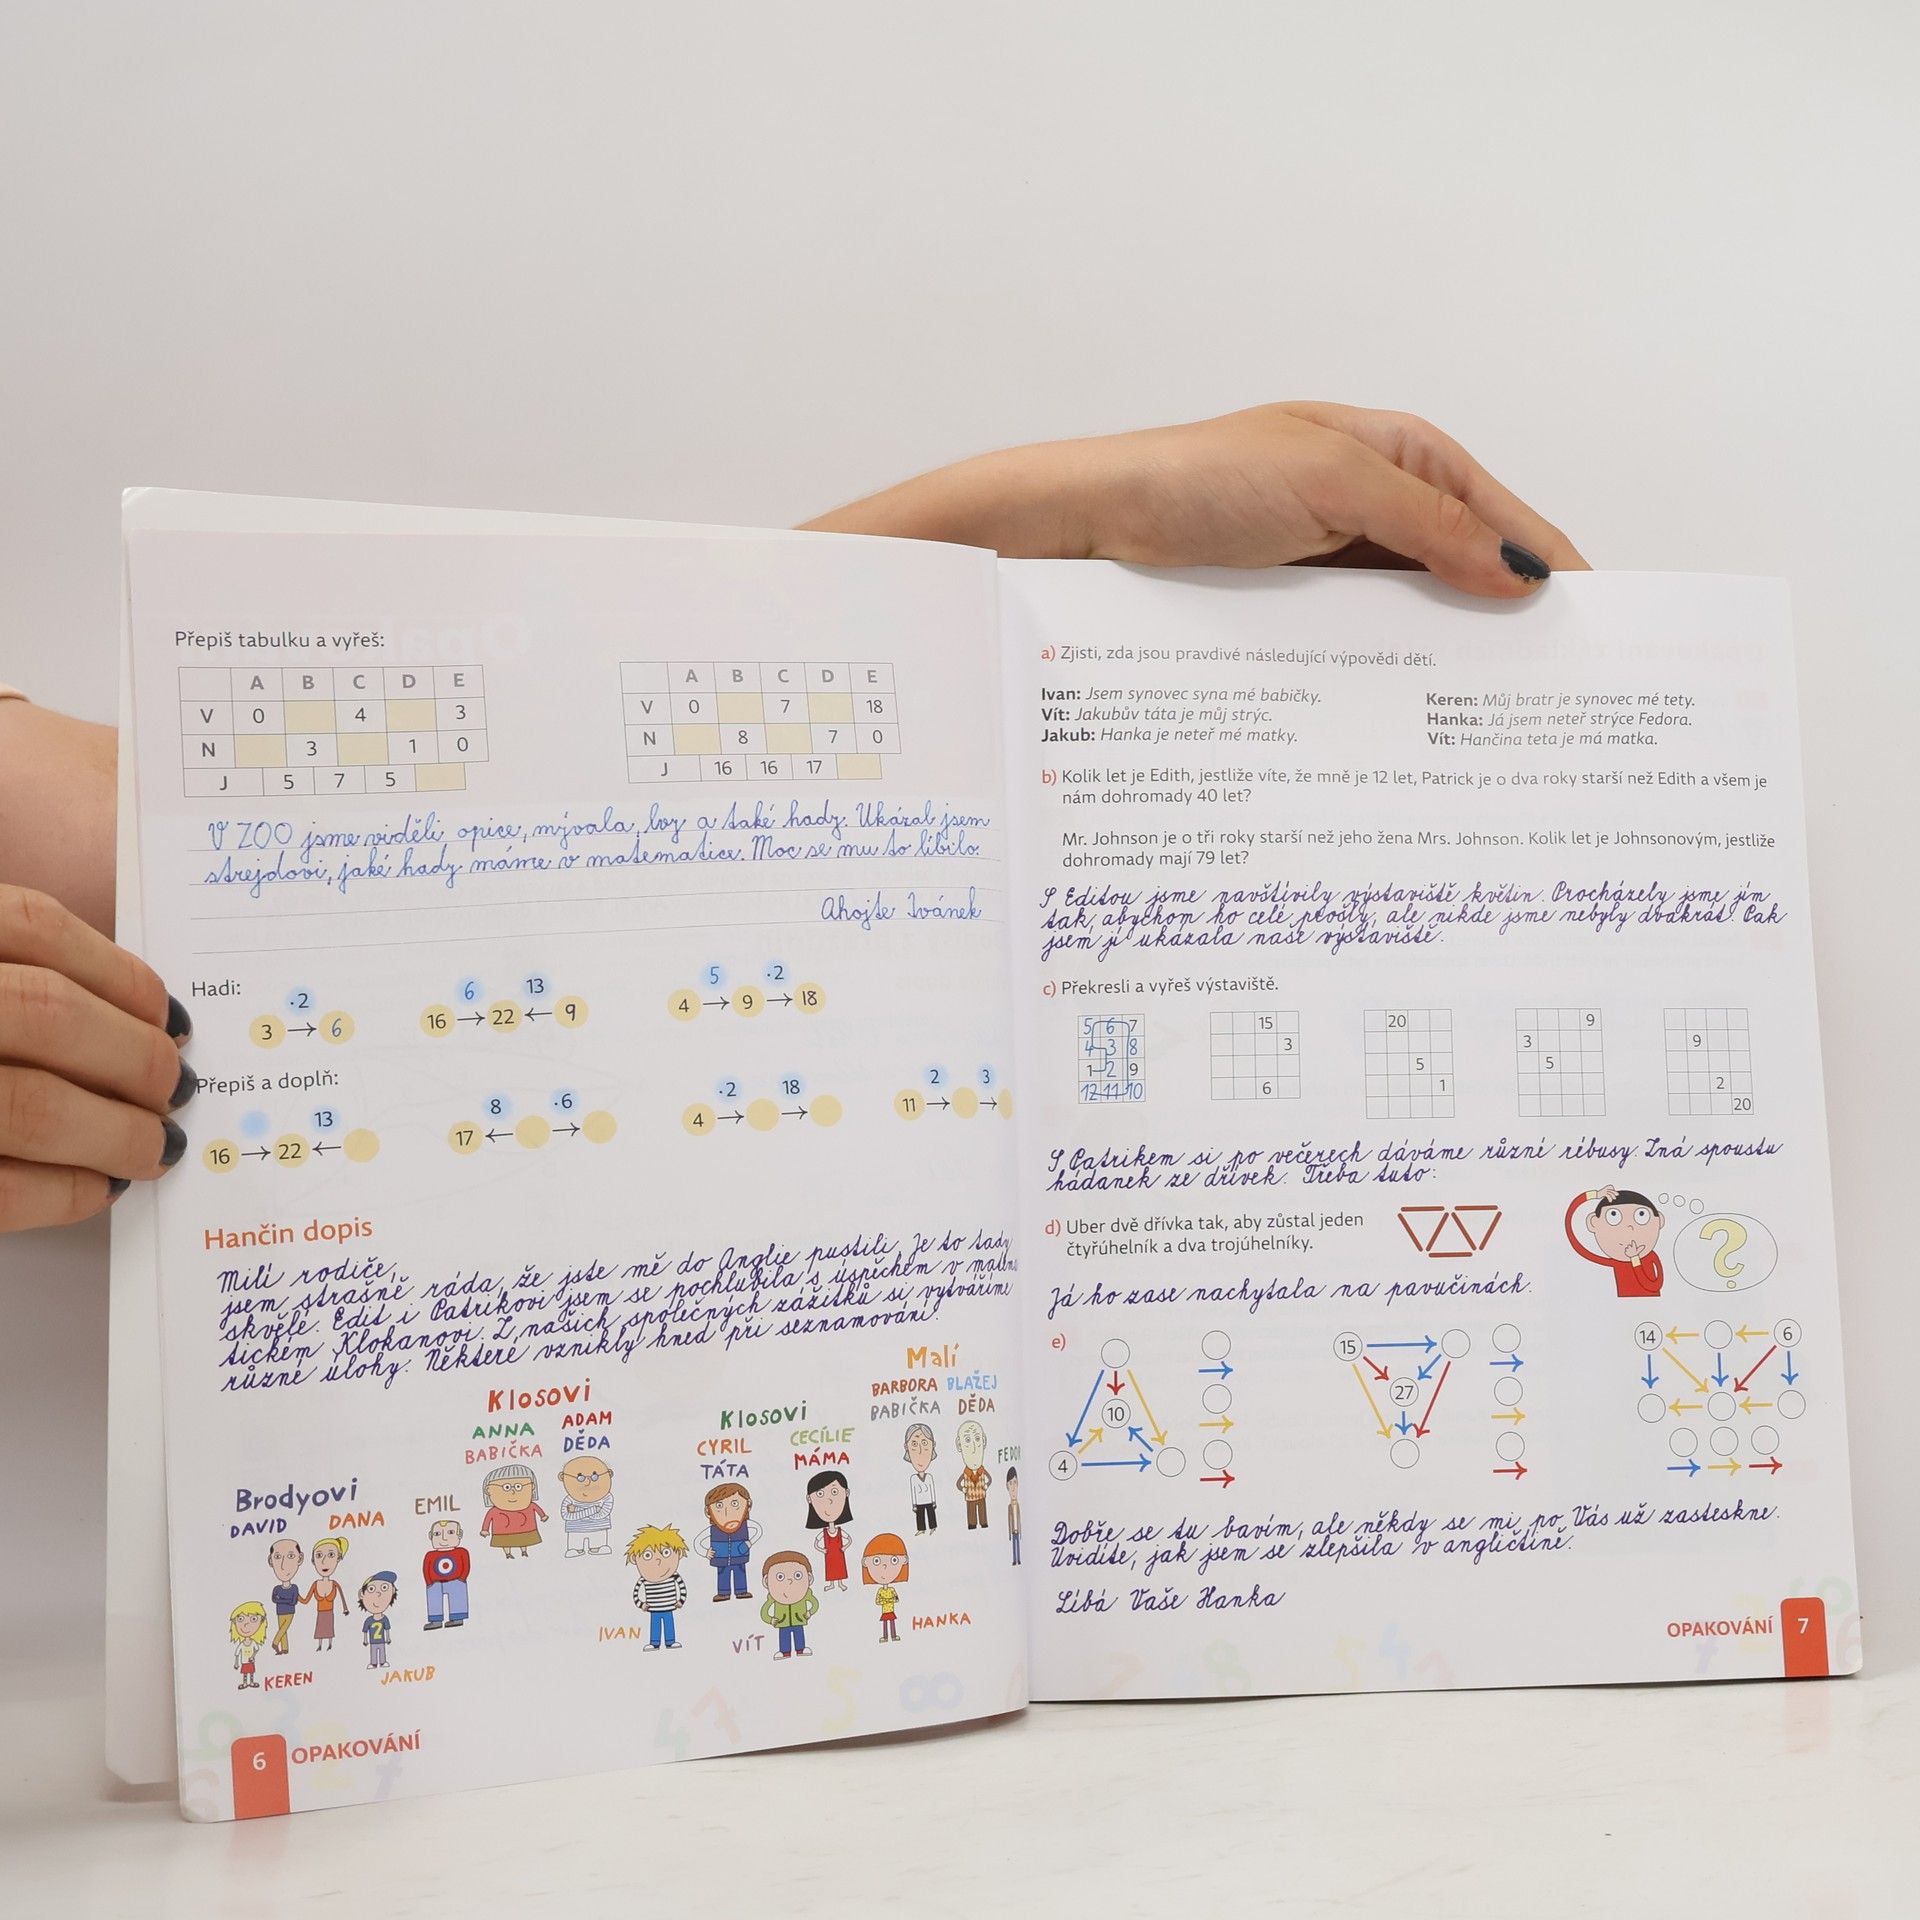 Přepiš tabulku a vyřeš:
A B C D E
V 0 4 3
N 3 1 0
J 5 7 5
A B C D E
V 0 7 18
N 8 7 0
J 16 16 17
V ZOO jsme viděli opice, mývala, lvy a také hady. Ukázal jsem
strejdovi, jaké hady máme v matematice. Moc se mu to líbilo.
Ahojte Ivánek
Hadi:
·2
3 6
6 13
16 22 9
5 ·2
4 9 18
Přepiš a doplň:
13
16 22
8 ·6
17
·2 18
4
2 3
11
Hančin dopis
Milí rodiče,
jsem strašně ráda, že jste mě do Anglie pustili. Je to tady
skvělé. Edit i Patrikovi jsem se pochlubila s úspěchem v
tickém Klokanovi. Z našich společných zážitků si vytváříme
různé úlohy. Některé vznikly hned při seznamování.
Brodyovi
DAVID DANA
EMIL
KEREN
JAKUB
Klosovi
ANNA ADAM
BABIČKA DĚDA
Klosovi
CYRIL CECÍLIE
TÁTA MÁMA
IVAN
VÍT
HANKA
Malí
BARBORA BLAŽEJ
BABIČKA DĚDA
6 OPAKOVÁNÍ
a) Zjisti, zda jsou pravdivé následující výpovědi dětí.
Ivan: Jsem synovec syna mé babičky.
Vít: Jakubův táta je můj strýc.
Jakub: Hanka je neteř mé matky.
Keren: Můj bratr je synovec mé tety.
Hanka: Já jsem neteř strýce Fedora.
Vít: Hančina teta je má matka.
b) Kolik let je Edith, jestliže víte, že mně je 12 let, Patrick je o dva roky starší než Edith a všem je
nám dohromady 40 let?
Mr. Johnson je o tři roky starší než jeho žena Mrs. Johnson. Kolik let je Johnsonovým, jestliže
dohromady mají 79 let?
S Editou jsme navštívily výstaviště květin. Procházely jsme jím
tak, abychom ho celé prošly, ale nikde jsme nebyly dvakrát. Pak
jsem jí ukázala naše výstaviště.
c) Překresli a vyřeš výstaviště.
5 6 7
4 3 8
1 2 9
12 11 10
15
3
6
20
5
1
9
3
5
9
2
20
S Patrikem si po večerech dáváme různé rébusy. Zná spoustu
hádanek ze dřívek. Třeba tuto:
d) Uber dvě dřívka tak, aby zůstal jeden
čtyřúhelník a dva trojúhelníky.
?
Já ho zase nachytala na pavučinách.
e)
10
4
15
27
14 6
Dobře se tu bavím, ale někdy se mi po Vás už zasteskne.
Uvidíte, jak jsem se zlepšila v angličtině.
Líbá Vaše Hanka
OPAKOVÁNÍ 7